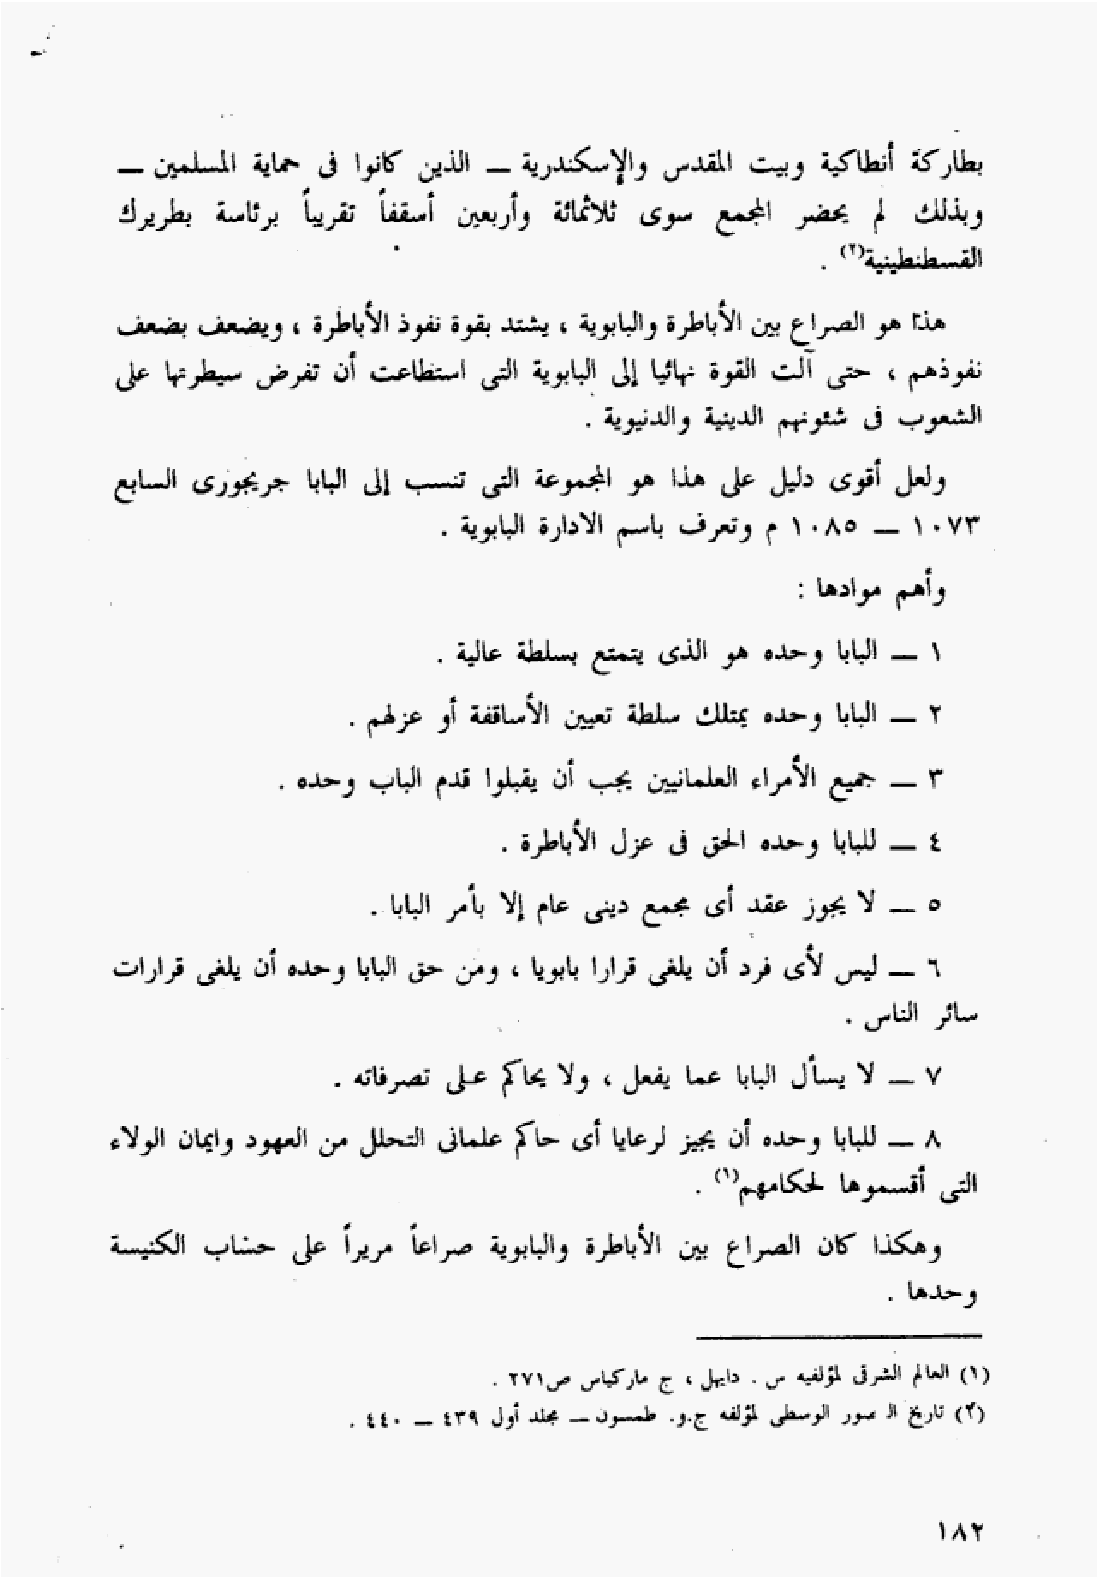 بطاركة أنطاكية وبيت المقدس والإسكندرية ــ الذين كانوا فى حماية المسلمين ــ
وبذلك لم يحضر المجمع سوى ثلاثمائة وأربعين أسقفاً تقريباً برئاسة بطريرك
القسطنطينية(٢) .
هذا هو الصراع بين الأباطرة والبابوية ، يشتد بقوة نفوذ الأباطرة ، ويضعف بضعف
نفوذهم ، حتى آلت القوة نهائيا إلى البابوية التى استطاعت أن تفرض سيطرتها على
الشعوب فى شئونهم الدينية والدنيوية .
ولعل أقوى دليل على هذا هو المجموعة التى تنسب إلى البابا جريجورى السابع
١٠٧٣ ــ ١٠٨٥ م وتعرف باسم الادارة البابوية .
وأهم موادها :
١ ــ البابا وحده هو الذى يتمتع بسلطة عالية .
٢ ــ البابا وحده يمتلك سلطة تعيين الأساقفة أو عزلهم .
٣ ــ جميع الأمراء العلمانيين يجب أن يقبلوا قدم الباب وحده .
٤ ــ للبابا وحده الحق فى عزل الأباطرة .
٥ ــ لا يجوز عقد أى مجمع دينى عام إلا بأمر البابا .
٦ ــ ليس لأى فرد أن يلغى قرارا بابويا ، ومن حق البابا وحده أن يلغى قرارات
سائر الناس .
٧ ــ لا يسأل البابا عما يفعل ، ولا يحاكم على تصرفاته .
٨ ــ للبابا وحده أن يجيز لرعايا أى حاكم علمانى التحلل من العهود وايمان الولاء
التى أقسموها لحكامهم(١) .
وهكذا كان الصراع بين الأباطرة والبابوية صراعاً مريراً على حساب الكنيسة
وحدها .
(١) العالم الشرقى لمؤلفيه س . دايهل ، ج ماركياس ص٢٧١ .
(٢) تاريخ الـ صور الوسطى لمؤلفه ج.و. طمسون ــ مجلد أول ٤٣٩ ــ ٤٤٠ .
١٨٢